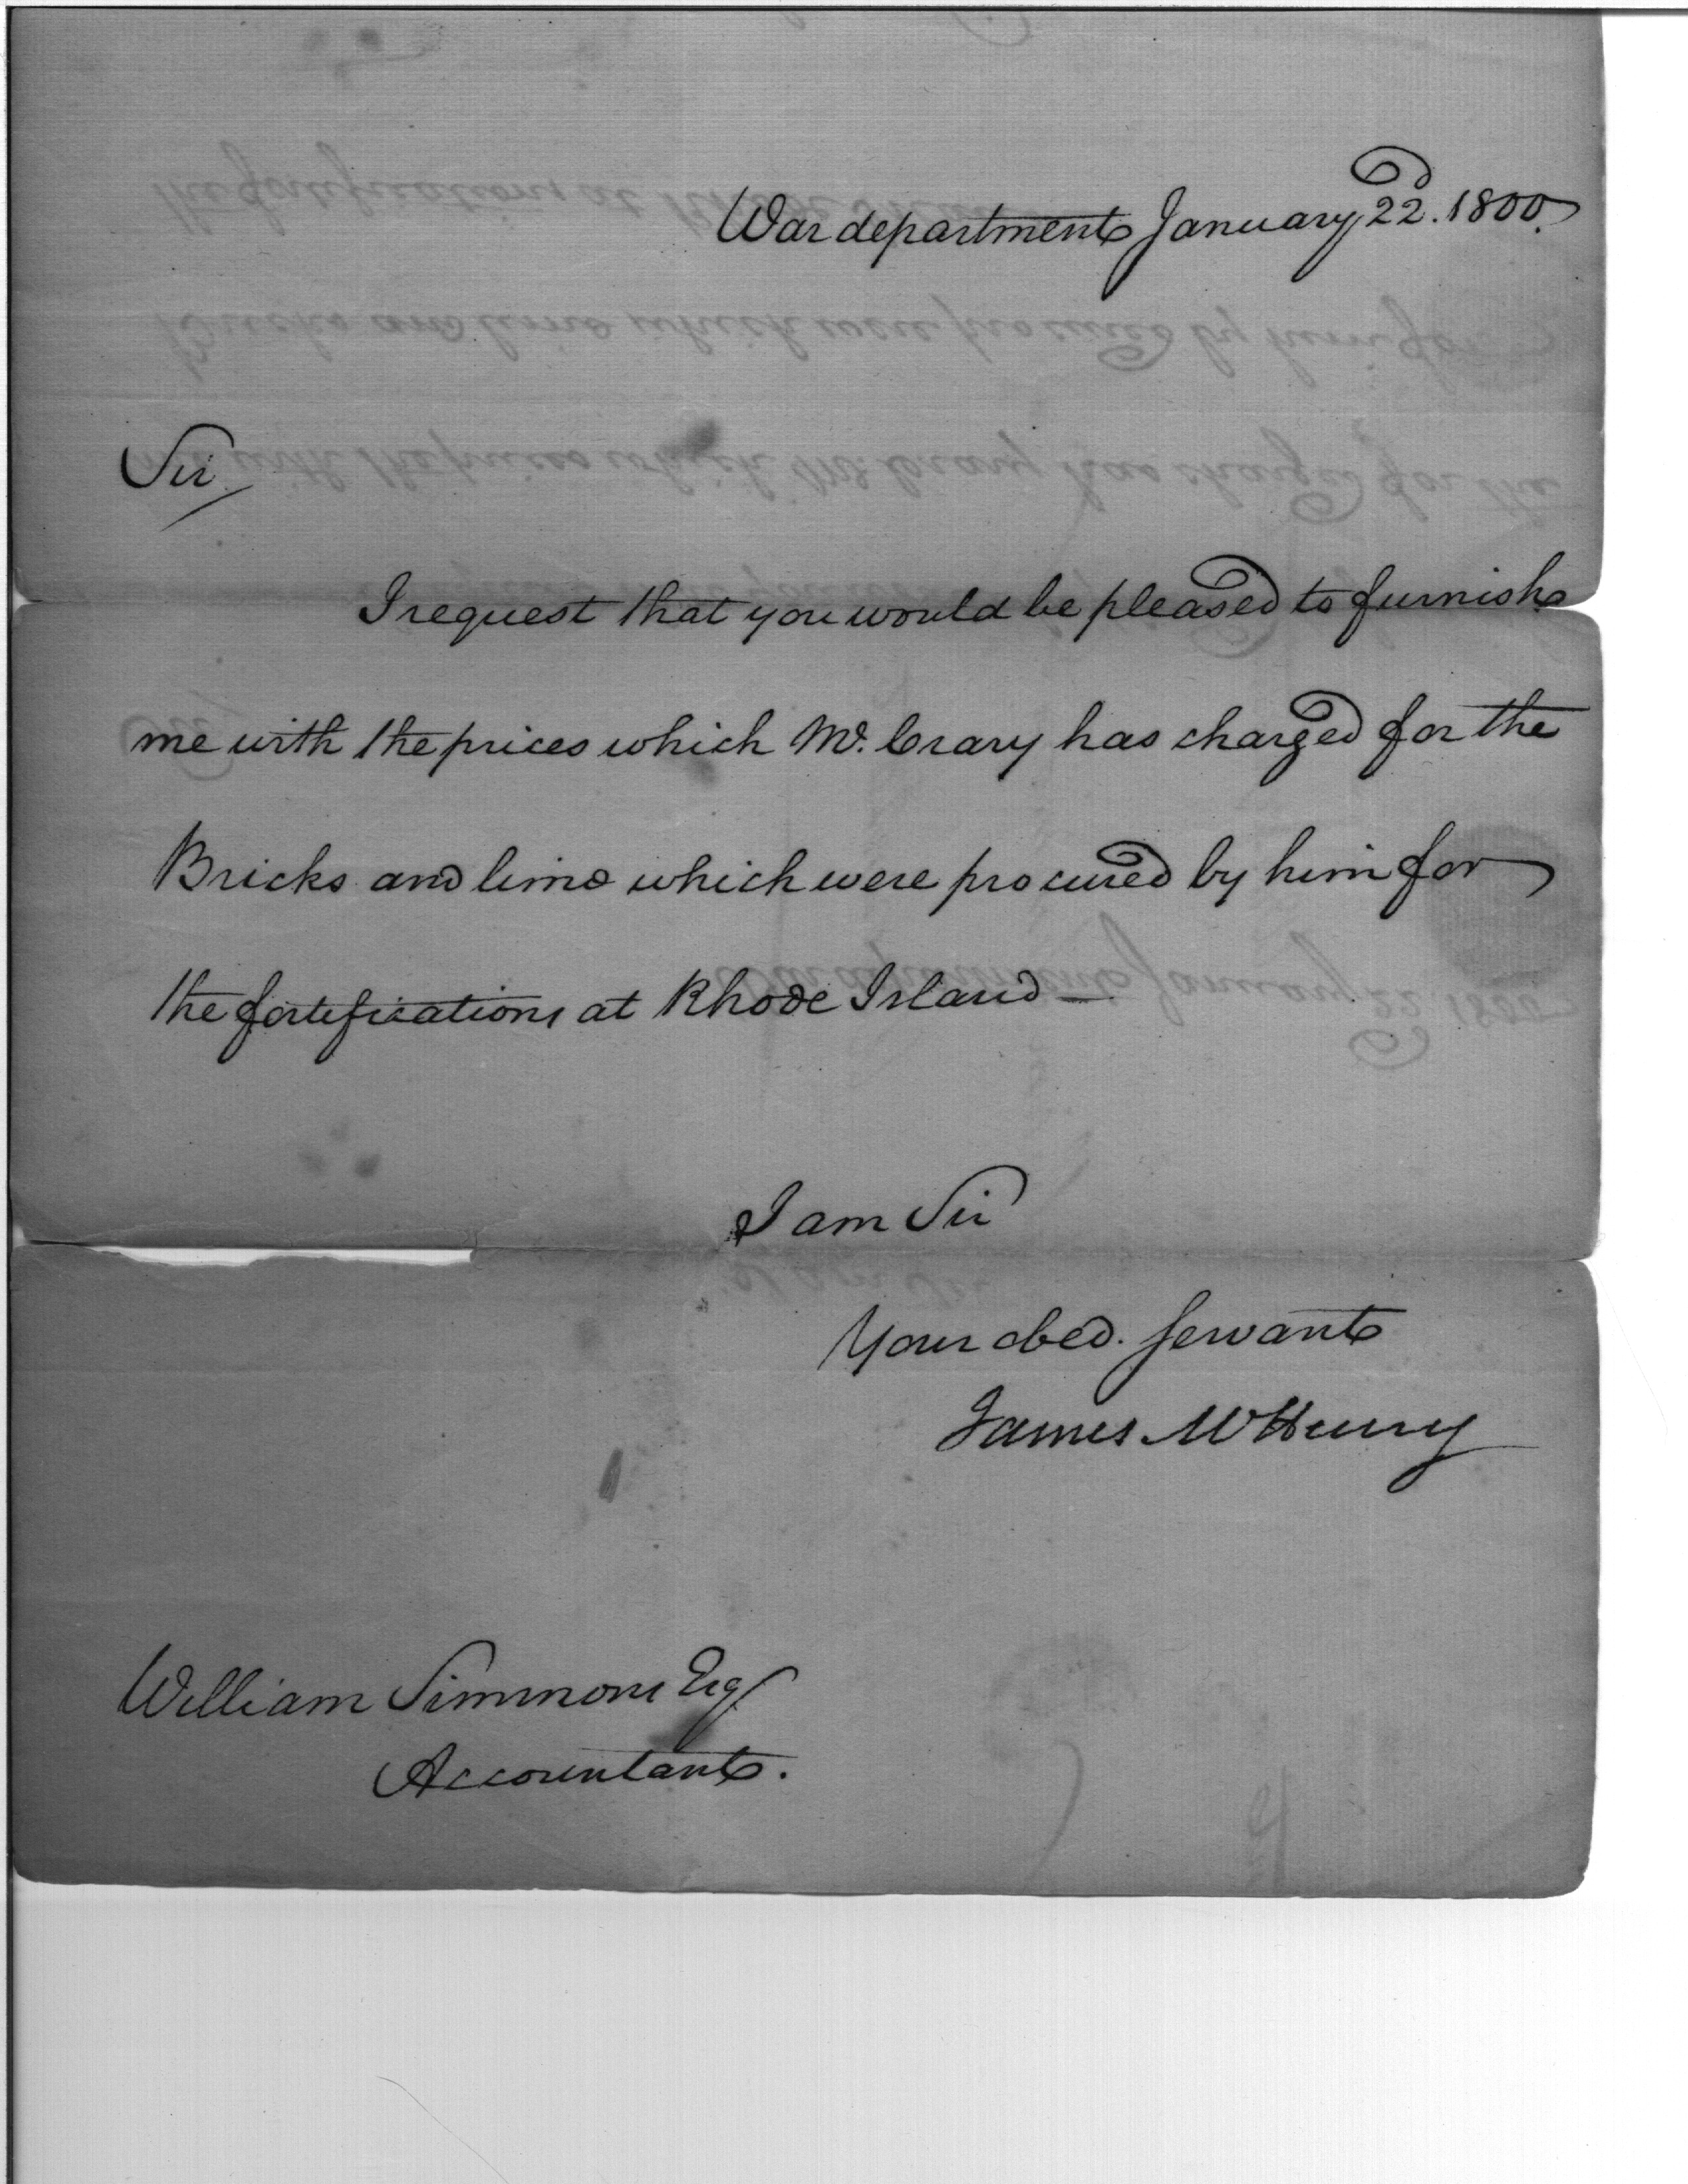 War department January 22d. 1800.
Sir
I request that you would be pleased to furnish
me with the prices which Mr. Crary has charged for the
Bricks and lime which were procured by him for
the fortifications at Rhode Island —
I am Sir
Your obed. servant
James McHenry
William Simmons Esq
Accountant.